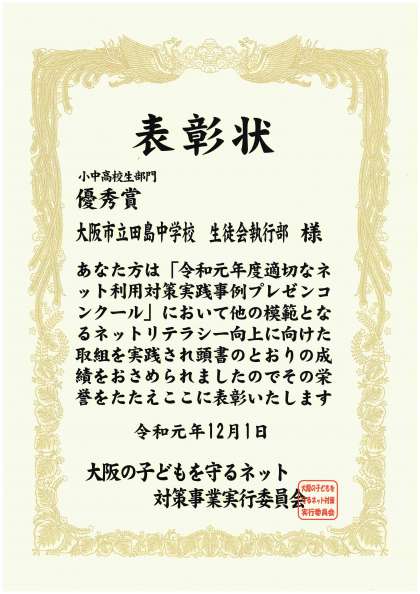 表彰状
小中高校生部門
優秀賞
大阪市立田島中学校 生徒会執行部 様
あなた方は「令和元年度適切なネ
ット利用対策実践事例プレゼンコ
ンクール」において他の模範とな
るネットリテラシー向上に向けた
取組を実践され頭書のとおりの成
績をおさめられましたのでその栄
誉をたたえここに表彰いたします
令和元年12月1日
大阪の子どもを守るネット
対策事業実行委員会
大阪の子どもを
守るネット対策
実行委員会